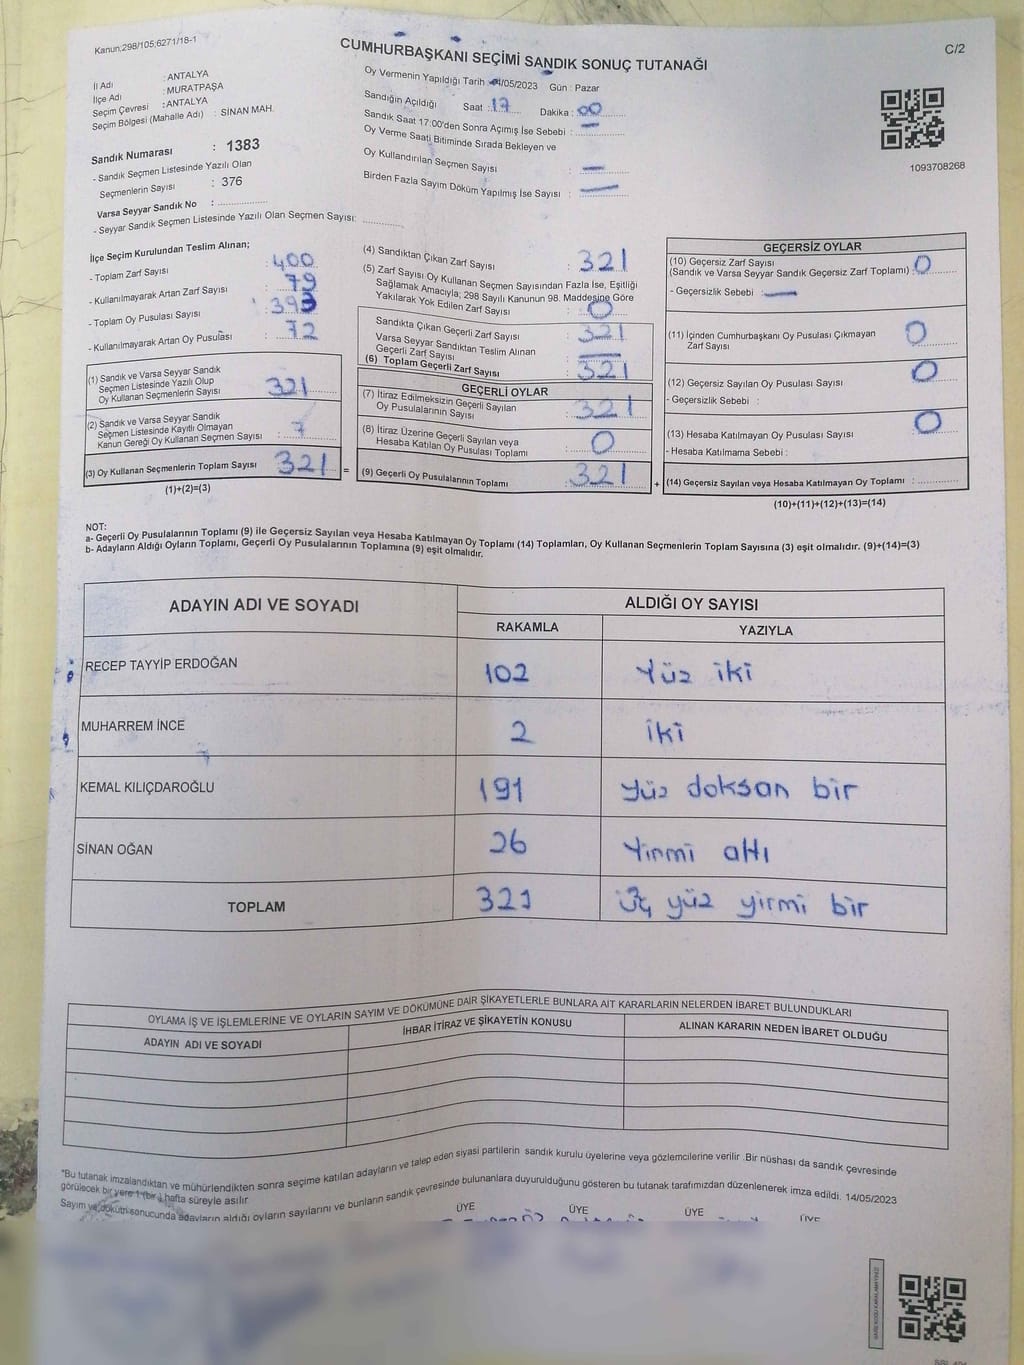 Kanun:298/105;6271/18-1
CUMHURBAŞKANI SEÇİMİ SANDIK SONUÇ TUTANAĞI
C/2
İl Adı : ANTALYA
İlçe Adı : MURATPAŞA
Seçim Çevresi : ANTALYA
Seçim Bölgesi (Mahalle Adı) : SİNAN MAH.
Sandık Numarası : 1383
- Sandık Seçmen Listesinde Yazılı Olan
Seçmenlerin Sayısı : 376
Varsa Seyyar Sandık No :
- Seyyar Sandık Seçmen Listesinde Yazılı Olan Seçmen Sayısı:
Oy Vermenin Yapıldığı Tarih /05/2023 Gün : Pazar
Sandığın Açıldığı Saat : 17 Dakika : 00
Sandık Saat 17:00'den Sonra Açımış İse Sebebi : —
Oy Verme Saati Bitiminde Sırada Bekleyen ve
Oy Kullandırılan Seçmen Sayısı : —
Birden Fazla Sayım Döküm Yapılmış İse Sayısı : —
1093708268
İlçe Seçim Kurulundan Teslim Alınan;
- Toplam Zarf Sayısı : 400
- Kullanılmayarak Artan Zarf Sayısı : 79
- Toplam Oy Pusulası Sayısı : 393
- Kullanılmayarak Artan Oy Pusulası : 72
(1) Sandık ve Varsa Seyyar Sandık
Seçmen Listesinde Yazılı Olup
Oy Kullanan Seçmenlerin Sayısı : 321
(2) Sandık ve Varsa Seyyar Sandık
Seçmen Listesinde Kayıtlı Olmayan
Kanun Gereği Oy Kullanan Seçmen Sayısı :
(3) Oy Kullanan Seçmenlerin Toplam Sayısı : 321 =
(1)+(2)=(3)
(4) Sandıktan Çıkan Zarf Sayısı : 321
(5) Zarf Sayısı Oy Kullanan Seçmen Sayısından Fazla İse, Eşitliği
Sağlamak Amacıyla; 298 Sayılı Kanunun 98. Maddesine Göre
Yakılarak Yok Edilen Zarf Sayısı : 0
Sandıkta Çıkan Geçerli Zarf Sayısı : 321
Varsa Seyyar Sandıktan Teslim Alınan
Geçerli Zarf Sayısı : —
(6) Toplam Geçerli Zarf Sayısı : 321
GEÇERLİ OYLAR
(7) İtiraz Edilmeksizin Geçerli Sayılan
Oy Pusulalarının Sayısı : 321
(8) İtiraz Üzerine Geçerli Sayılan veya
Hesaba Katılan Oy Pusulası Toplamı : 0
(9) Geçerli Oy Pusulalarının Toplamı : 321 +
GEÇERSİZ OYLAR
(10) Geçersiz Zarf Sayısı
(Sandık ve Varsa Seyyar Sandık Geçersiz Zarf Toplamı) : 0
- Geçersizlik Sebebi : —
(11) İçinden Cumhurbaşkanı Oy Pusulası Çıkmayan
Zarf Sayısı : 0
(12) Geçersiz Sayılan Oy Pusulası Sayısı : 0
- Geçersizlik Sebebi :
(13) Hesaba Katılmayan Oy Pusulası Sayısı : 0
- Hesaba Katılmama Sebebi :
(14) Geçersiz Sayılan veya Hesaba Katılmayan Oy Toplamı :
(10)+(11)+(12)+(13)=(14)
NOT:
a- Geçerli Oy Pusulalarının Toplamı (9) ile Geçersiz Sayılan veya Hesaba Katılmayan Oy Toplamı (14) Toplamları, Oy Kullanan Seçmenlerin Toplam Sayısına (3) eşit olmalıdır. (9)+(14)=(3)
b- Adayların Aldığı Oyların Toplamı, Geçerli Oy Pusulalarının Toplamına (9) eşit olmalıdır.
ADAYIN ADI VE SOYADI ALDIĞI OY SAYISI
RAKAMLA YAZIYLA
RECEP TAYYİP ERDOĞAN 102 Yüz iki
MUHARREM İNCE 2 iki
KEMAL KILIÇDAROĞLU 191 yüz doksan bir
SİNAN OĞAN 26 Yirmi altı
TOPLAM 321 Üç yüz yirmi bir
OYLAMA İŞ VE İŞLEMLERİNE VE OYLARIN SAYIM VE DÖKÜMÜNE DAİR ŞİKAYETLERLE BUNLARA AİT KARARLARIN NELERDEN İBARET BULUNDUKLARI
ADAYIN ADI VE SOYADI İHBAR İTİRAZ VE ŞİKAYETİN KONUSU ALINAN KARARIN NEDEN İBARET OLDUĞU
*Bu tutanak imzalandıktan ve mühürlendikten sonra seçime katılan adayların ve talep eden siyasi partilerin sandık kurulu üyelerine veya gözlemcilerine verilir .Bir nüshası da sandık çevresinde
görülecek bir yere 1 (bir ) hafta süreyle asılır.
Sayım ve döküm sonucunda adayların aldığı oyların sayılarını ve bunların sandık çevresinde bulunanlara duyurulduğunu gösteren bu tutanak tarafımızdan düzenlenerek imza edildi. 14/05/2023
ÜYE ÜYE ÜYE ÜYE